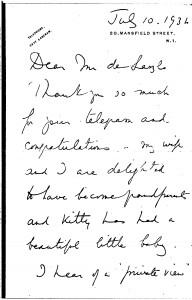 July 10. 1936
TELEPHONE,
20, MANSFIELD STREET,
W.1.
Dear Mr de Laszlo
Thank you so much
for your telegram and
congratulations - my wife
and I are delighted
to have become grandparents
and Kitty has had a
beautiful little baby.
I hear of a "private view"